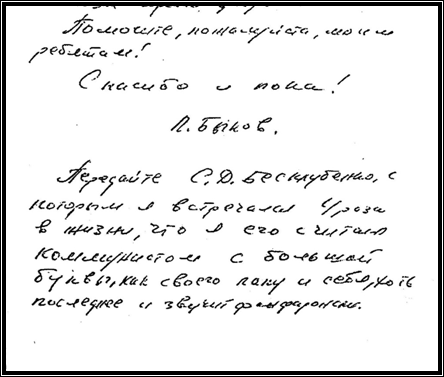 Помогите, пожалуйста, моим
ребятам!
Спасибо и пока!
Л. Быков.
Передайте С.Д. Бесклубенко, с
которым я встречался 4 раза
в жизни, что я его считал
коммунистом с большой
буквы, как своего папу и себя, хоть
последнее и звучит фанфаронски.